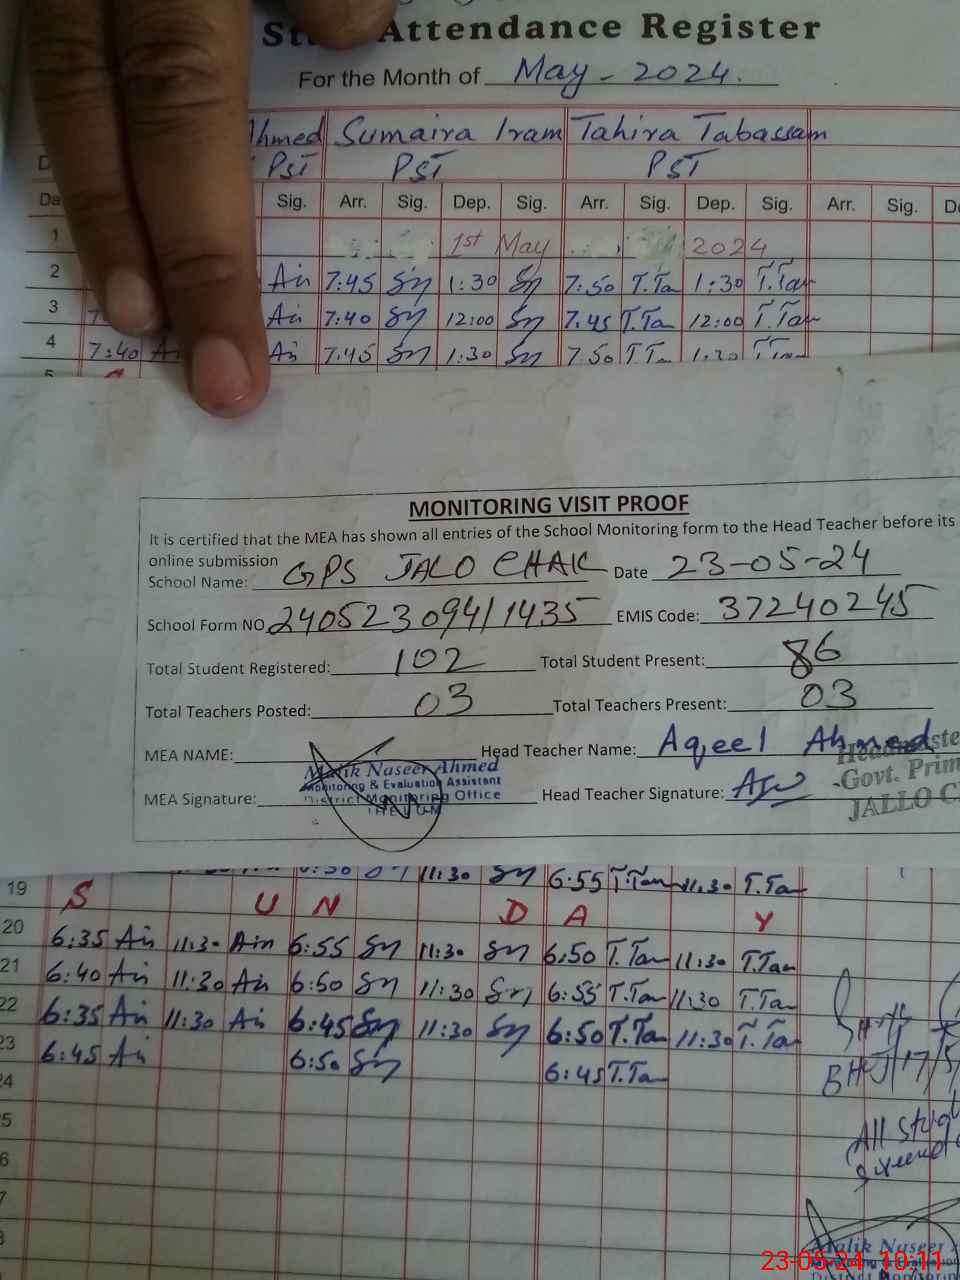 Attendance Register
For the Month of May - 2024.
Ahmed Sumaira Iram Tahira Tabassam
PST PST PST
Sig. Arr. Sig. Dep. Sig. Arr. Sig. Dep. Sig. Arr. Sig.
1 1st May 2024
2 Ain 7:45 Sn 1:30 Sn 7:50 T.Tan 1:30 T.Tan
3 Ain 7:40 Sn 12:00 Sn 7:45 T.Tan 12:00 T.Tan
4 7:40 Ain Ain 7:45 Sn 1:30 Sn 7:50 T.Tan 1:30 T.Tan
5
MONITORING VISIT PROOF
It is certified that the MEA has shown all entries of the School Monitoring form to the Head Teacher before its
online submission
School Name: GPS JALO CHAK Date 23-05-24
School Form NO 24052309411435 EMIS Code: 37240245
Total Student Registered: 102 Total Student Present: 86
Total Teachers Posted: 03 Total Teachers Present: 03
MEA NAME: Head Teacher Name: Aqeel Ahmed
Malik Naseer Ahmed
Monitoring & Evaluation Assistant
District Monitoring Office
JHELUM
MEA Signature: Head Teacher Signature:
Govt. Prim
JALLO C
11:30 Sn 6:55 T.Tan 11:30 T.Tan
19 S U N D A Y
20 6:35 Ain 11:30 Ain 6:55 Sn 11:30 Sn 6:50 T.Tan 11:30 T.Tan
21 6:40 Ain 11:30 Ain 6:50 Sn 11:30 Sn 6:55 T.Tan 11:30 T.Tan
22 6:35 Ain 11:30 Ain 6:45 Sn 11:30 Sn 6:50 T.Tan 11:30 T.Tan
23 6:45 Ain 6:50 Sn 6:45 T.Tan
24
BHU 17/5
All
Malik Naseer
23-05-24 10:11